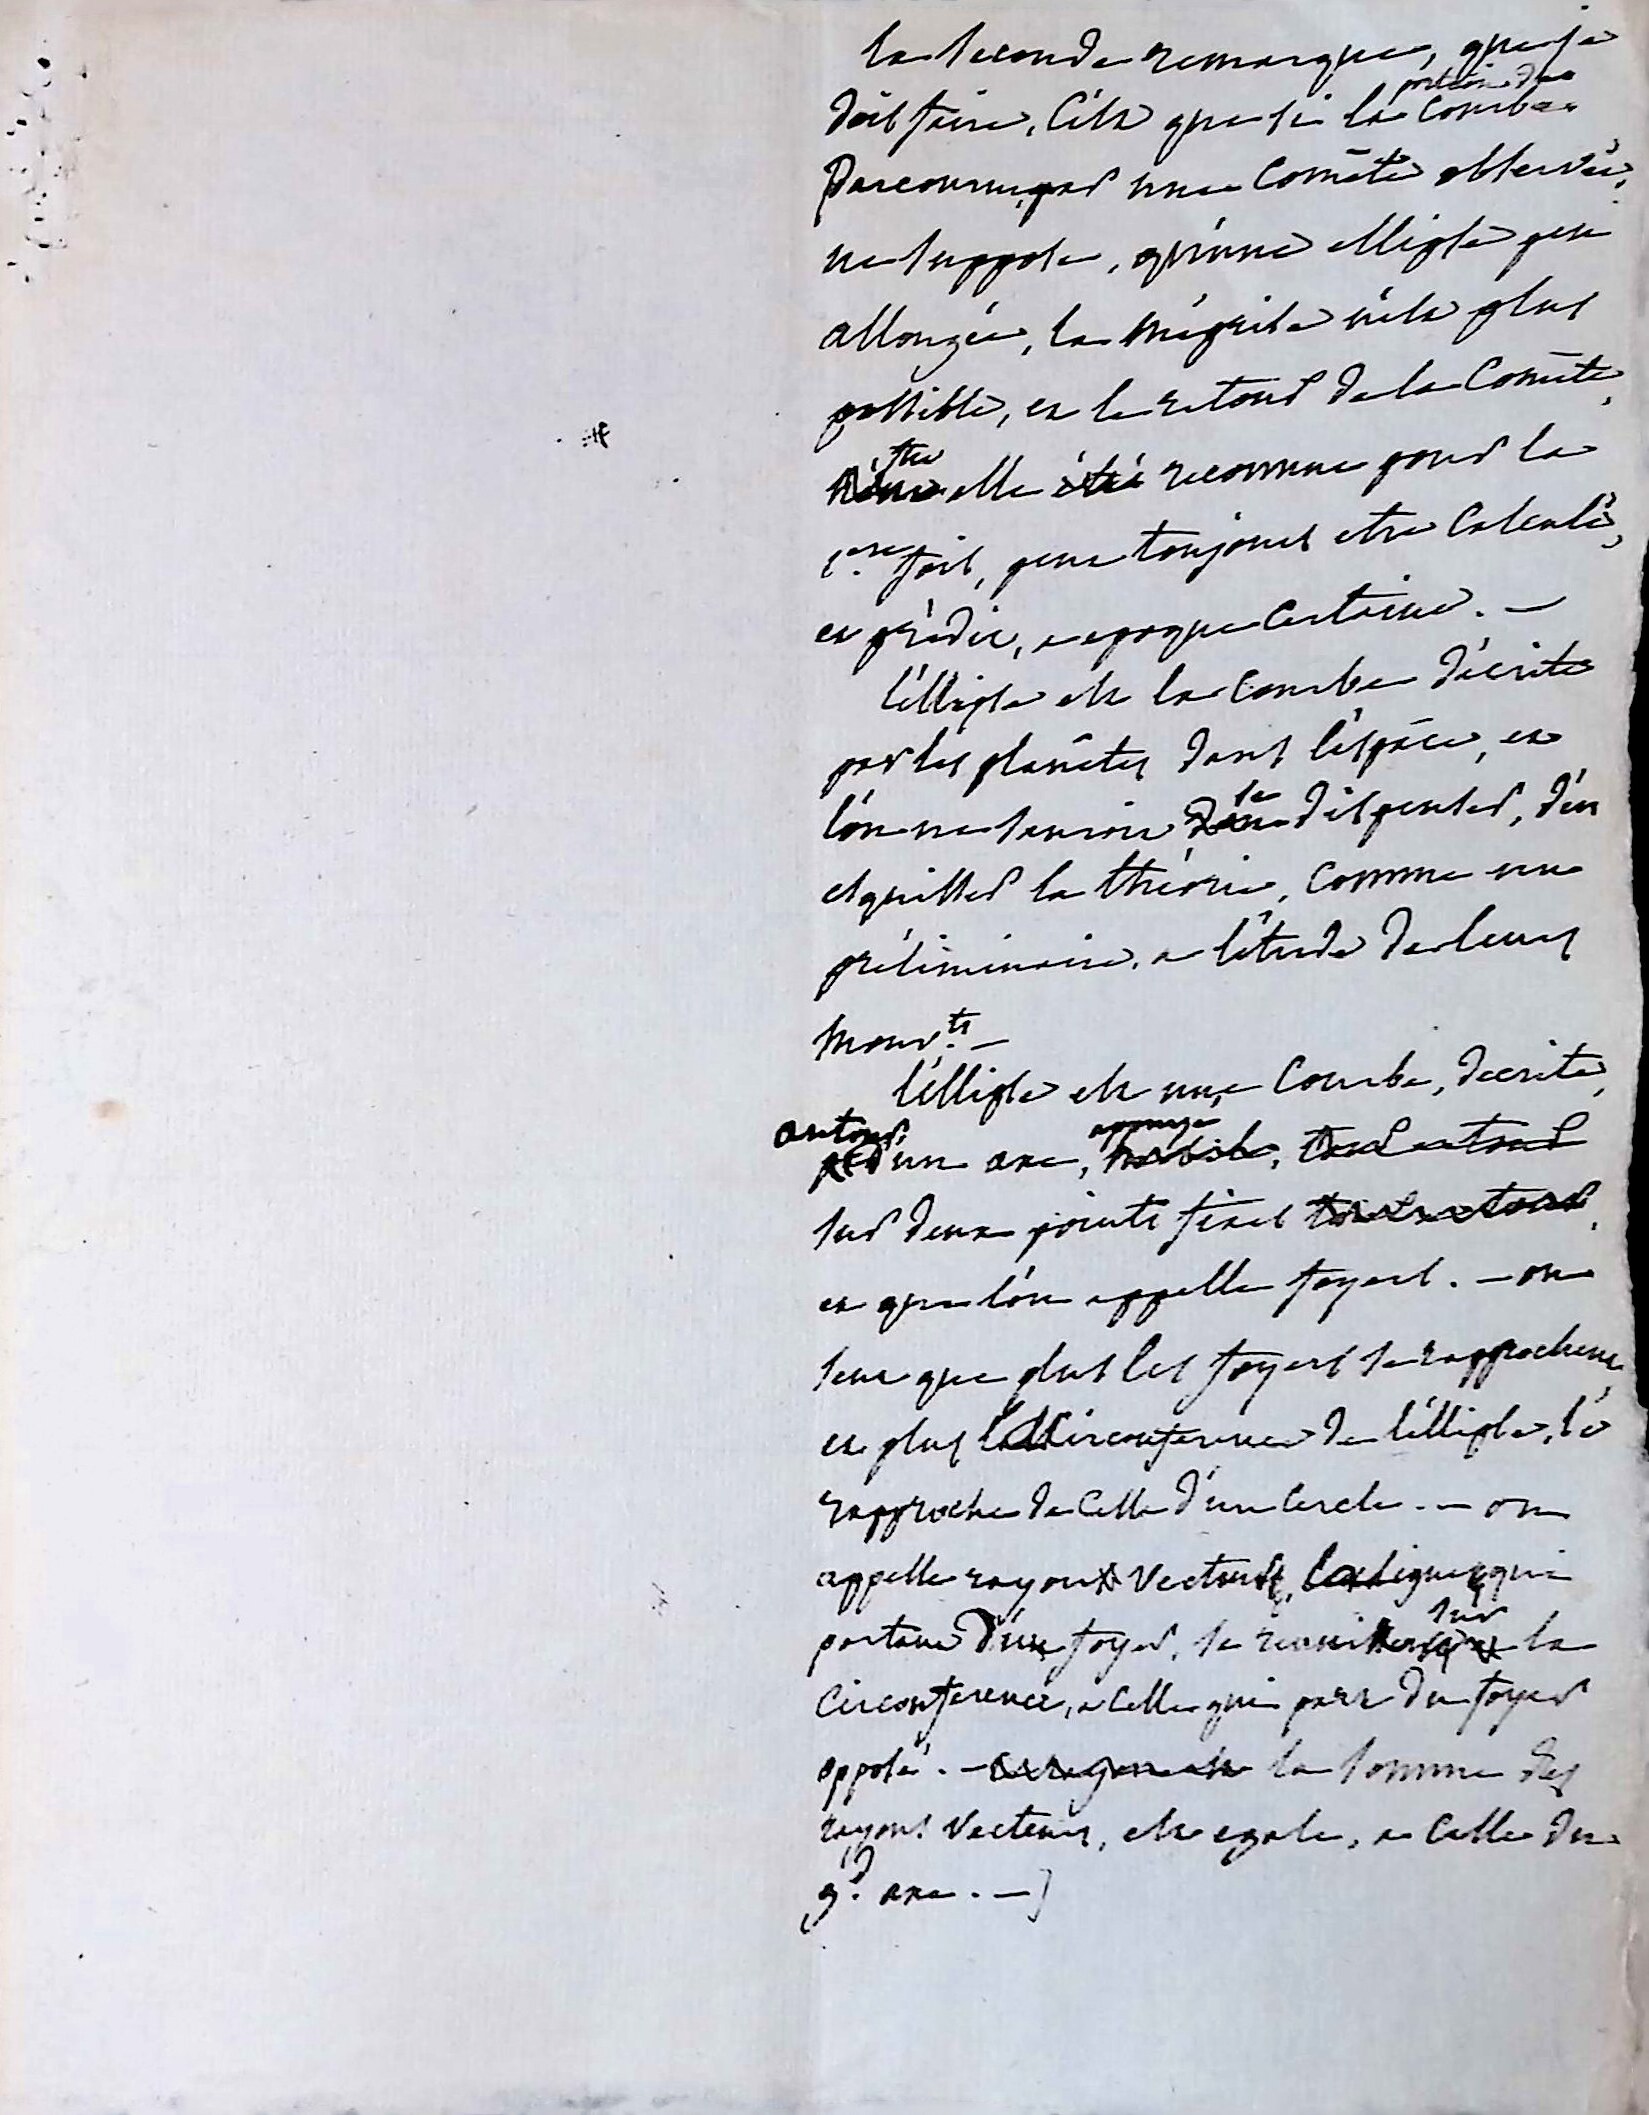 la seconde remarque, que je
portion de
dois faire, c'est que si la courbe
parcourue, par une Comête observée,
ne suppose, qu'une ellipse peu
allongée, la méprise n'est plus
possible, et le retour de la Comête,
fut
elle été reconnue pour la
1.ere fois, peut toujours etre Calculé,
et prédit, a epoque Certaine. —
l'éllipse est la Courbe décrite
par les planêtes dans l'éspace, et
se
l'on ne sauroit dispenser, d'en
esquisser la théorie, comme un
préliminaire, a l'étude de leurs
mouv.ts —
l'éllipse est une Courbe, decrite,
autour, appuyé
d'un axe, mobile, tout autour
sur deux points fixes tout autour,
et que l'on appelle foyers. — on
sent que plus les foyers se rapprochent,
et plus la Circonference de l'éllipse, se
rapproche de Celle d'un Cercle. — on
appelle rayon Vecteur, la ligne qui
sur
partant d'un foyer, se reunit la
Circonference, a Celle qui part du foyer
opposé. — la somme des
rayons Vecteurs, est egale, a Celle du
g.d axe. —]